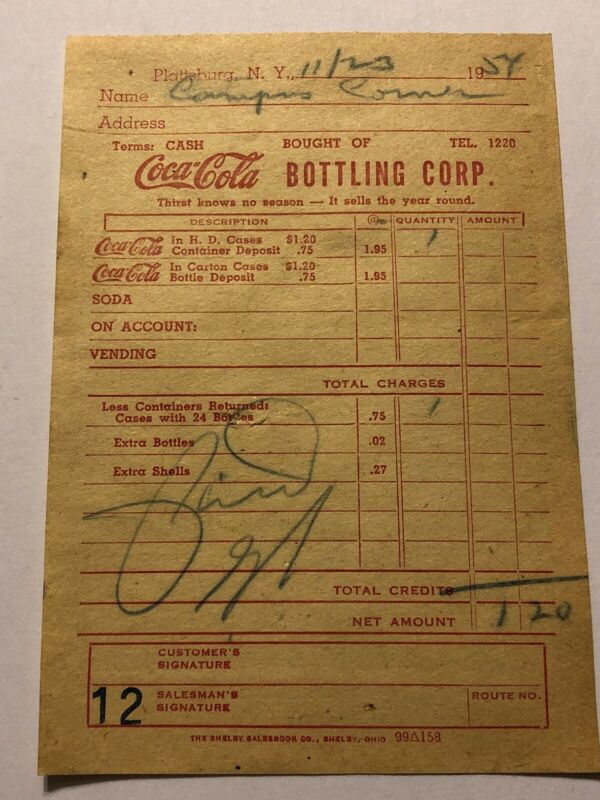 Plattsburg, N. Y., 11/23 1954
Name Campus Corner
Address
Terms: CASH BOUGHT OF TEL. 1220
Coca-Cola BOTTLING CORP.
Thirst knows no season — It sells the year round.
DESCRIPTION @ QUANTITY AMOUNT
Coca-Cola In H. D. Cases $1.20
Container Deposit .75 1.95 1
Coca-Cola In Carton Cases $1.20
Bottle Deposit .75 1.95
SODA
ON ACCOUNT:
VENDING
TOTAL CHARGES
Less Containers Returned:
Cases with 24 Bottles .75 1
Extra Bottles .02
Extra Shells .27
Paid
TOTAL CREDITS
NET AMOUNT 1 20
CUSTOMER'S
SIGNATURE
12 SALESMAN'S ROUTE NO.
SIGNATURE
THE SHELBY SALESBOOK CO., SHELBY, OHIO 99△158